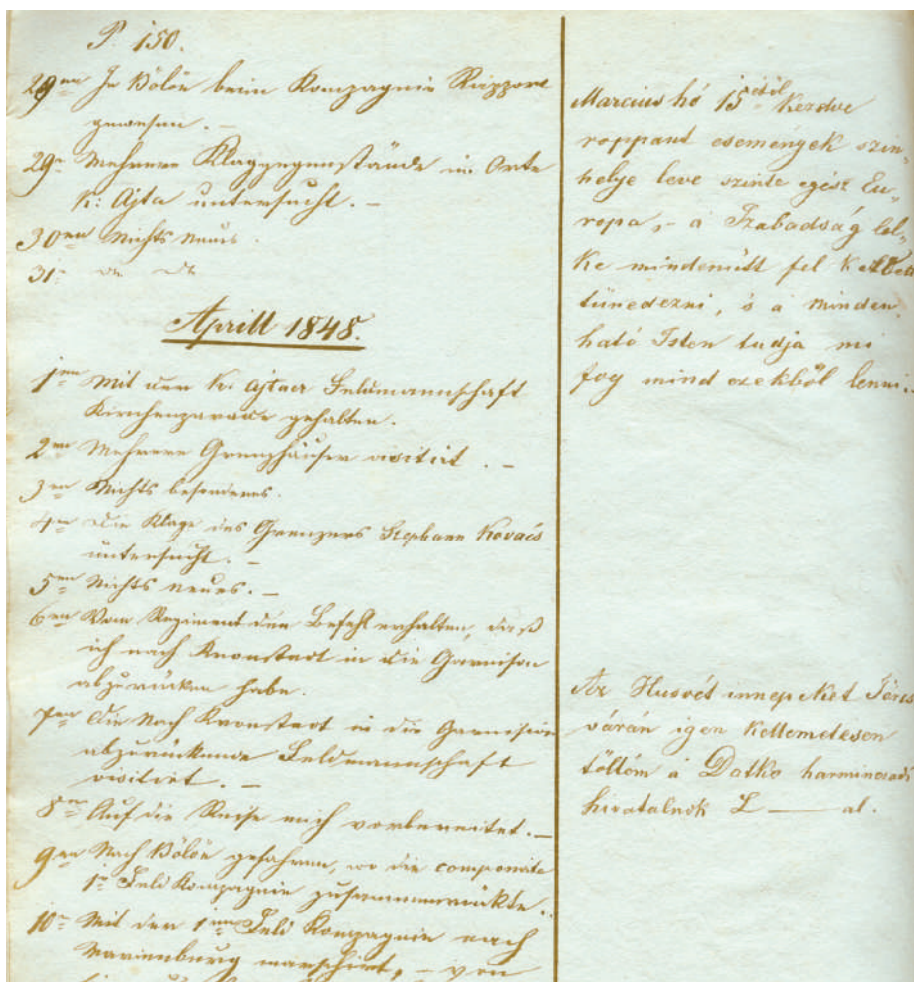 P. 150.
29en In Bölön beim Kompagnie Rapport
gewesen. –
29n Mehrere Klaggegenstände im Orte
K: Ajta untersucht. –
30en Nichts neues.
31n
Aprill 1848.
1en Mit der K: Ajtaer Feldmannschaft
Kirchenparade gehalten.
2en Mehrere Grenzhäuser visitirt. –
3en Nichts besonderes.
4en Die Klage des Grenzers Stephann Kovács
untersucht. –
5en Nichts neues. –
6en Vom Regiment den Befehl erhalten, daß
ich nach Kronstadt in die Garnison
abzurücken habe.
7en Die nach Kronstadt in die Garnision
abzurückende Feldmannschaft
visitirt. –
8en Auf die Reise mich vorbereitet. –
9en Nach Bölön gefahren, wo die componite
1e Feld Kompagnie zusammenrückte.
10n Mit der 1en Feld Kompagnie nach
Marienburg marschirt, – von
Marcius hó 15étöl kezdve
roppant események szin-
helye leve szinte egész Eu-
ropa, – a Szabadság lel-
ke mindenütt fel kezdett
tünedezni, 's a minden
ható Isten tudja mi
fog mind ezekből lenni.
Az Husvét innepeket Törcs
várán igen kellemetesen
töltöm a Datko harminczadi
hivatalnok L — al.